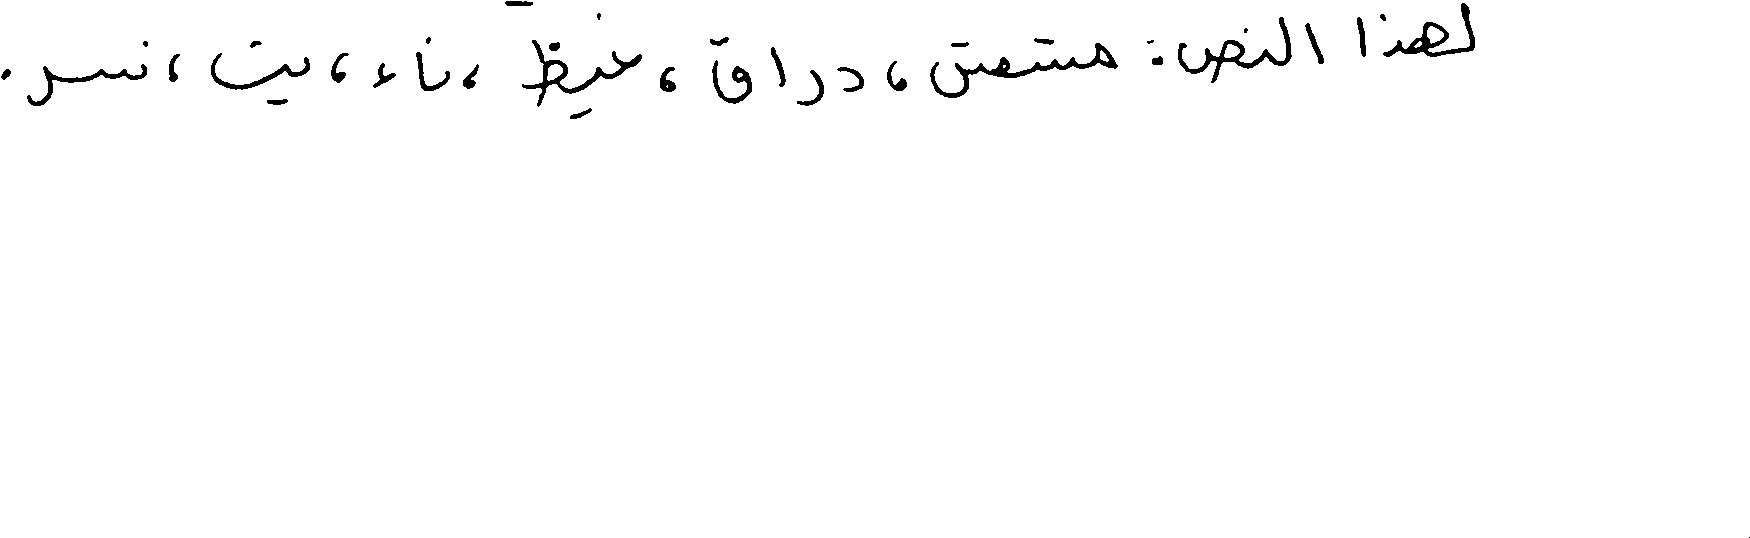 لهذا النص: مشمش، دراق، غيظ، ناء، بيت، نسر.